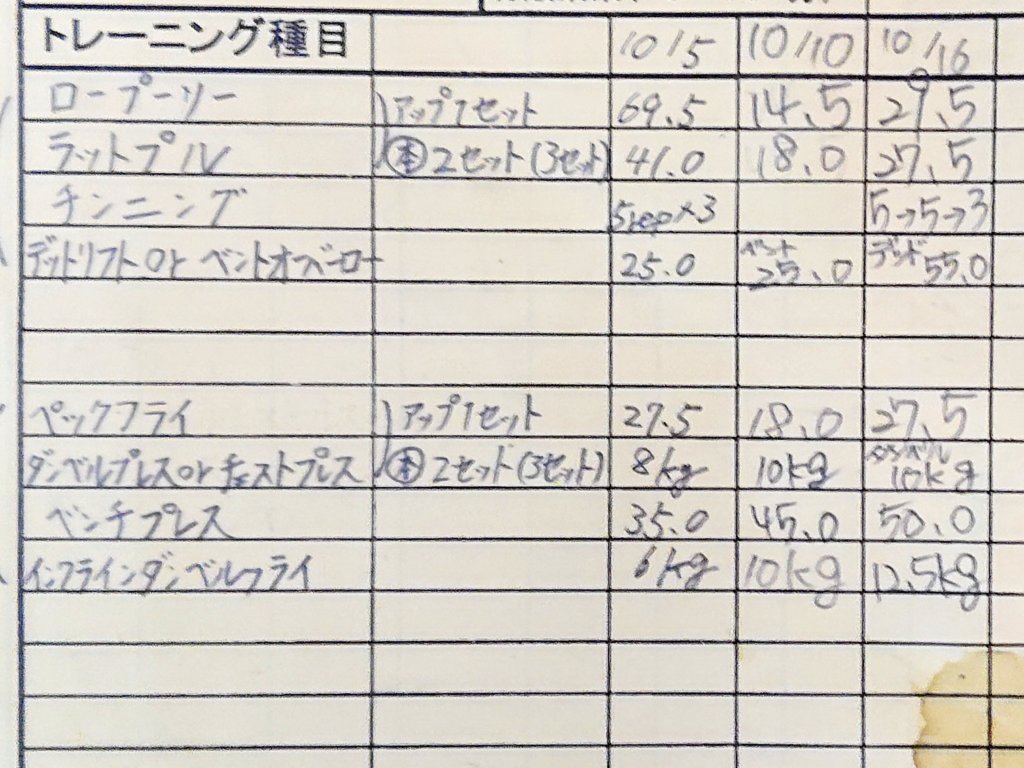 トレーニング種目 10/5 10/10 10/16
ロープーリー アップ1セット 69.5 14.5 29.5
ラットプル 本 2セット(3セット) 41.0 18.0 27.5
チンニング 5rep×3 5→5→3
デットリフト or ベントオーバーロー 25.0 ベント 25.0 デッド 55.0
ペックフライ アップ1セット 27.5 18.0 27.5
ダンベルプレス or チェストプレス 本 2セット(3セット) 8kg 10kg ダンベル 10kg
ベンチプレス 35.0 45.0 50.0
インクラインダンベルフライ 6kg 10kg 12.5kg